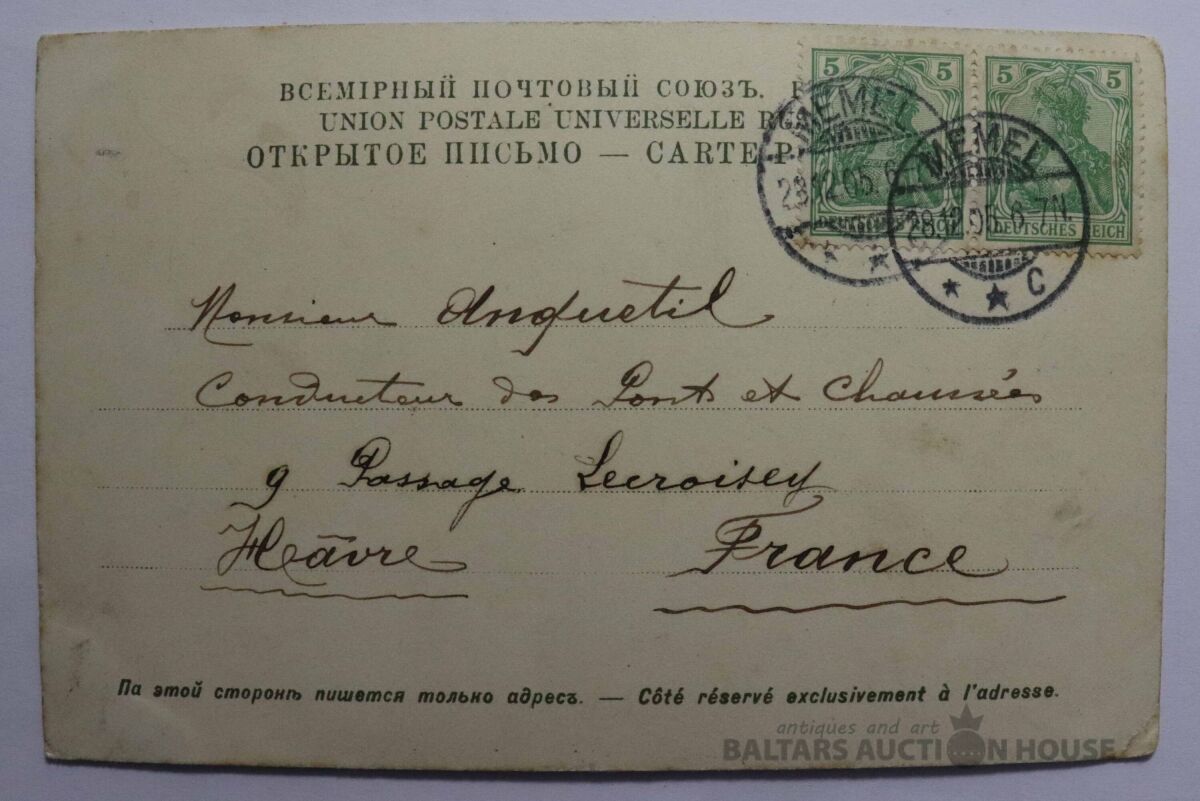 ВСЕМІРНЫЙ ПОЧТОВЫЙ СОЮЗЪ.
UNION POSTALE UNIVERSELLE
ОТКРЫТОЕ ПИСЬМО — CARTE
5 5 5 5
DEUTSCHES REICH
MEMEL
28.12.05. 6
MEMEL
28.12.05. 6-7N.
C
Monsieur Anquetil
Conducteur des Ponts et Chaussées
9 Passage Lecroisey
Hâvre France
Па этой сторонѣ пишется только адресъ. — Côté réservé exclusivement à l'adresse.
antiques and art
BALTARS AUCTION HOUSE